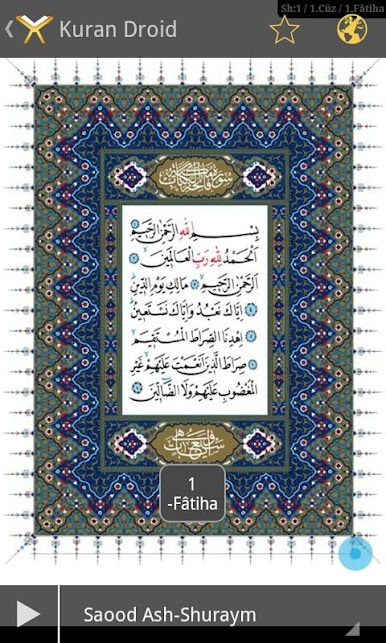 Sh:1 / 1.Cüz / 1.Fâtiha
Kuran Droid
بِسْمِ اللّٰهِ الرَّحْمٰنِ الرَّحِيمِ
اَلْحَمْدُ لِلّٰهِ رَبِّ الْعَالَمِينَ
اَلرَّحْمٰنِ الرَّحِيمِ مَالِكِ يَوْمِ الدِّينِ
اِيَّاكَ نَعْبُدُ وَاِيَّاكَ نَسْتَعِينُ
اِهْدِنَا الصِّرَاطَ الْمُسْتَقِيمَ
صِرَاطَ الَّذِينَ اَنْعَمْتَ عَلَيْهِمْ غَيْرِ
الْمَغْضُوبِ عَلَيْهِمْ وَلَا الضَّالِّينَ
1
-Fâtiha
Saood Ash-Shuraym